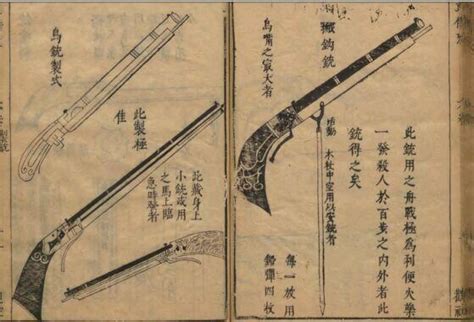 鈎銃
鳥嘴之最大者
此銃用舟戰極為利便火藥
一發殺人於百之内外者此
銃得之矣
木杖中空用以安銃者
每一放用
鉛彈四枚
鳥銃製式
此製極
佳
此藏身上
小銃或用
之馬上臨
急時發者